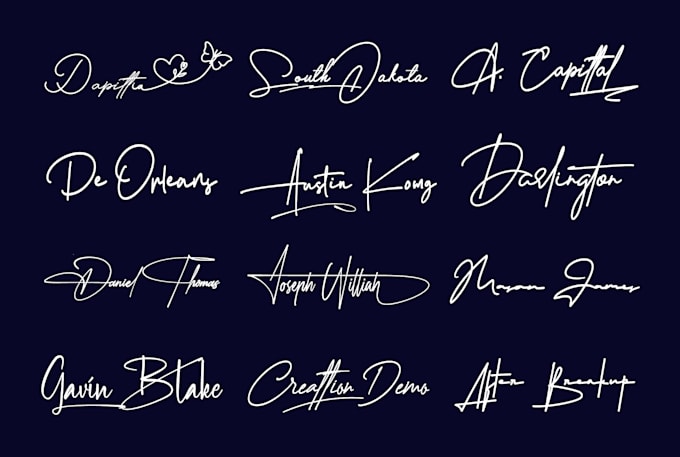 Dapitta South Dakota A. Capittal
De Orleans Austin Komg Darlington
Daniel Thomas Joseph Williah Mason James
Gavin Blake Creattion Demo After Breakup